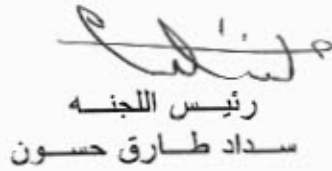 رئيس اللجنه
سداد طارق حسون